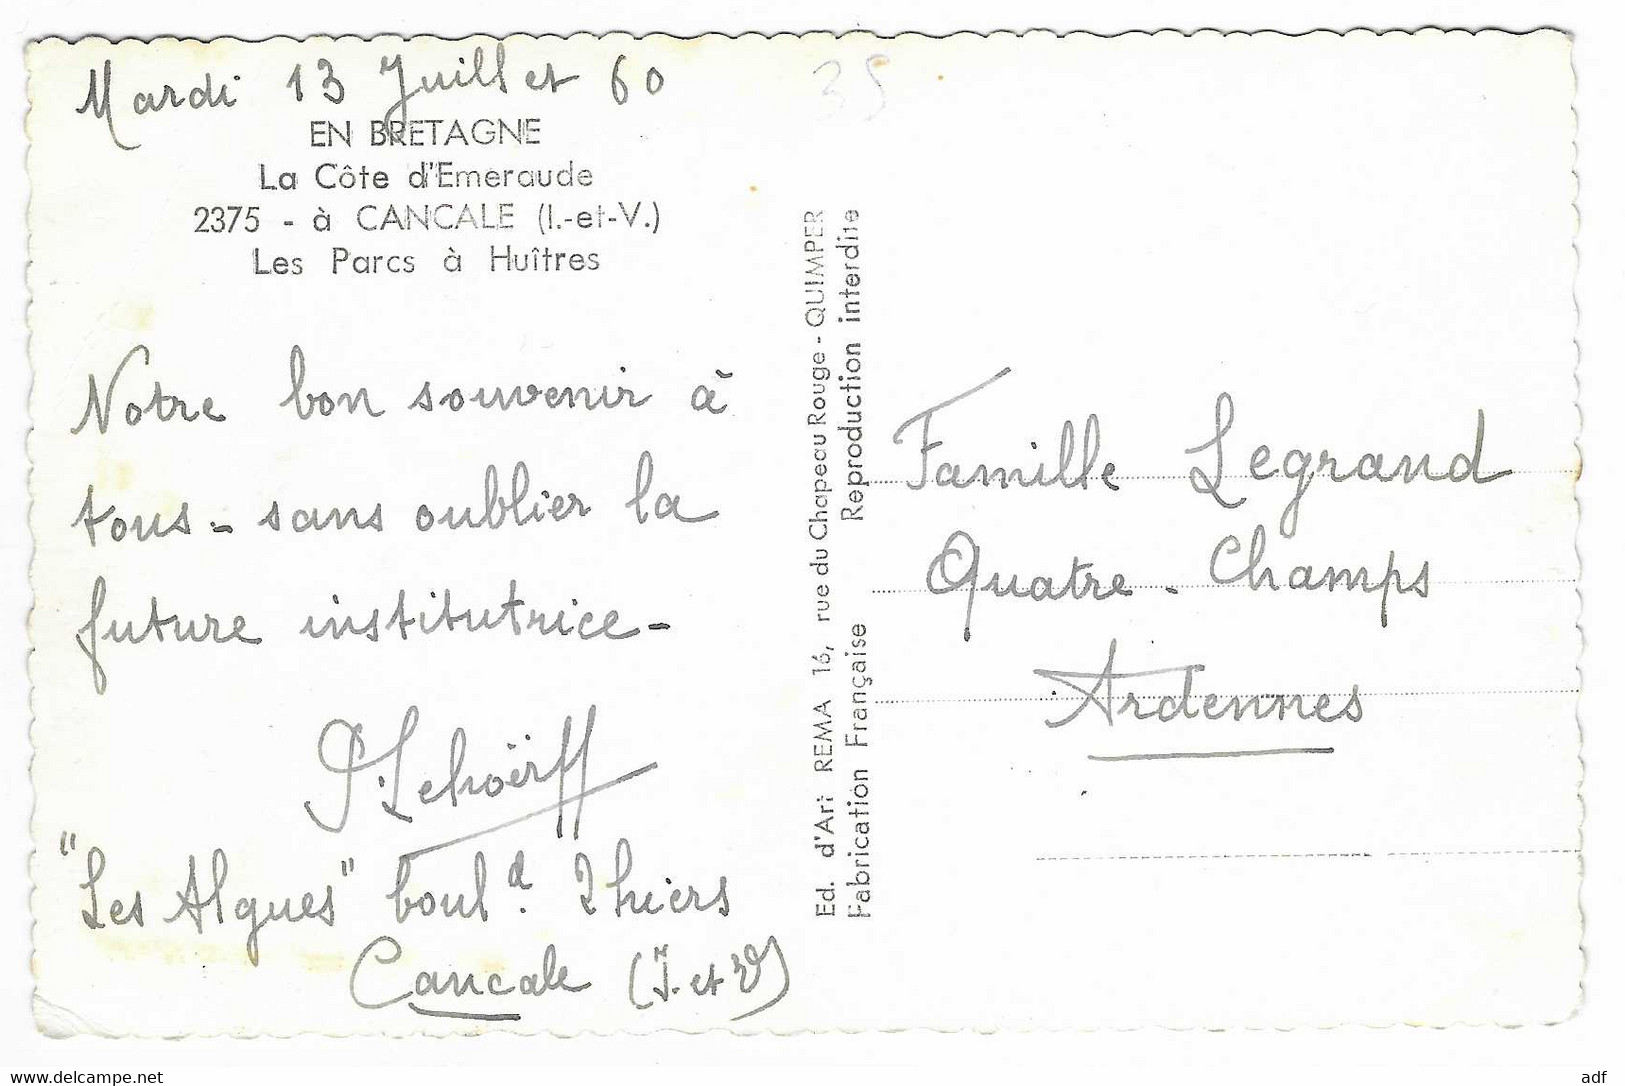 Mardi 13 Juillet 60
35
EN BRETAGNE
La Côte d'Emeraude
2375 - à CANCALE (I.-et-V.)
Les Parcs à Huîtres
Notre bon souvenir à
tous - sans oublier la
future institutrice -
P. Lehoërff
"Les Algues" boul.d Thiers
Cancale (I. et V)
Ed. d'Art REMA 16, rue du Chapeau Rouge - QUIMPER
Fabrication Française Reproduction interdite
Famille Legrand
Quatre - Champs
Ardennes
www.delcampe.net
adf